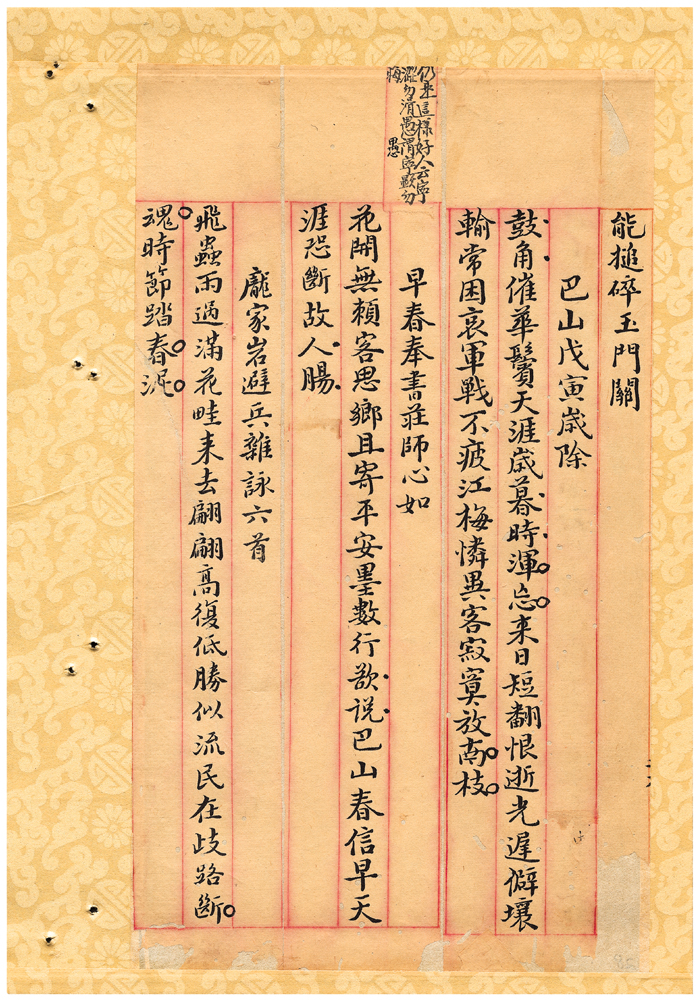 能搥碎玉門關
巴山戊寅歲除
鼓角催華鬢天涯歲暮時渾忘来日短翻恨逝光遲僻壤
輸常困哀軍戰不疲江梅憐異客寂寞放南枝
仍是這樣好人云寧
澀勿滑愚謂寧艱勿
晦
愚
早春奉書莊師心如
花開無賴客思鄉且寄平安墨數行欲説巴山春信早天
涯恐斷故人腸
龐家岩避兵雜詠六首
飛蟲雨過滿花畦来去翩翩高復低勝似流民在歧路斷
魂時節踏春泥